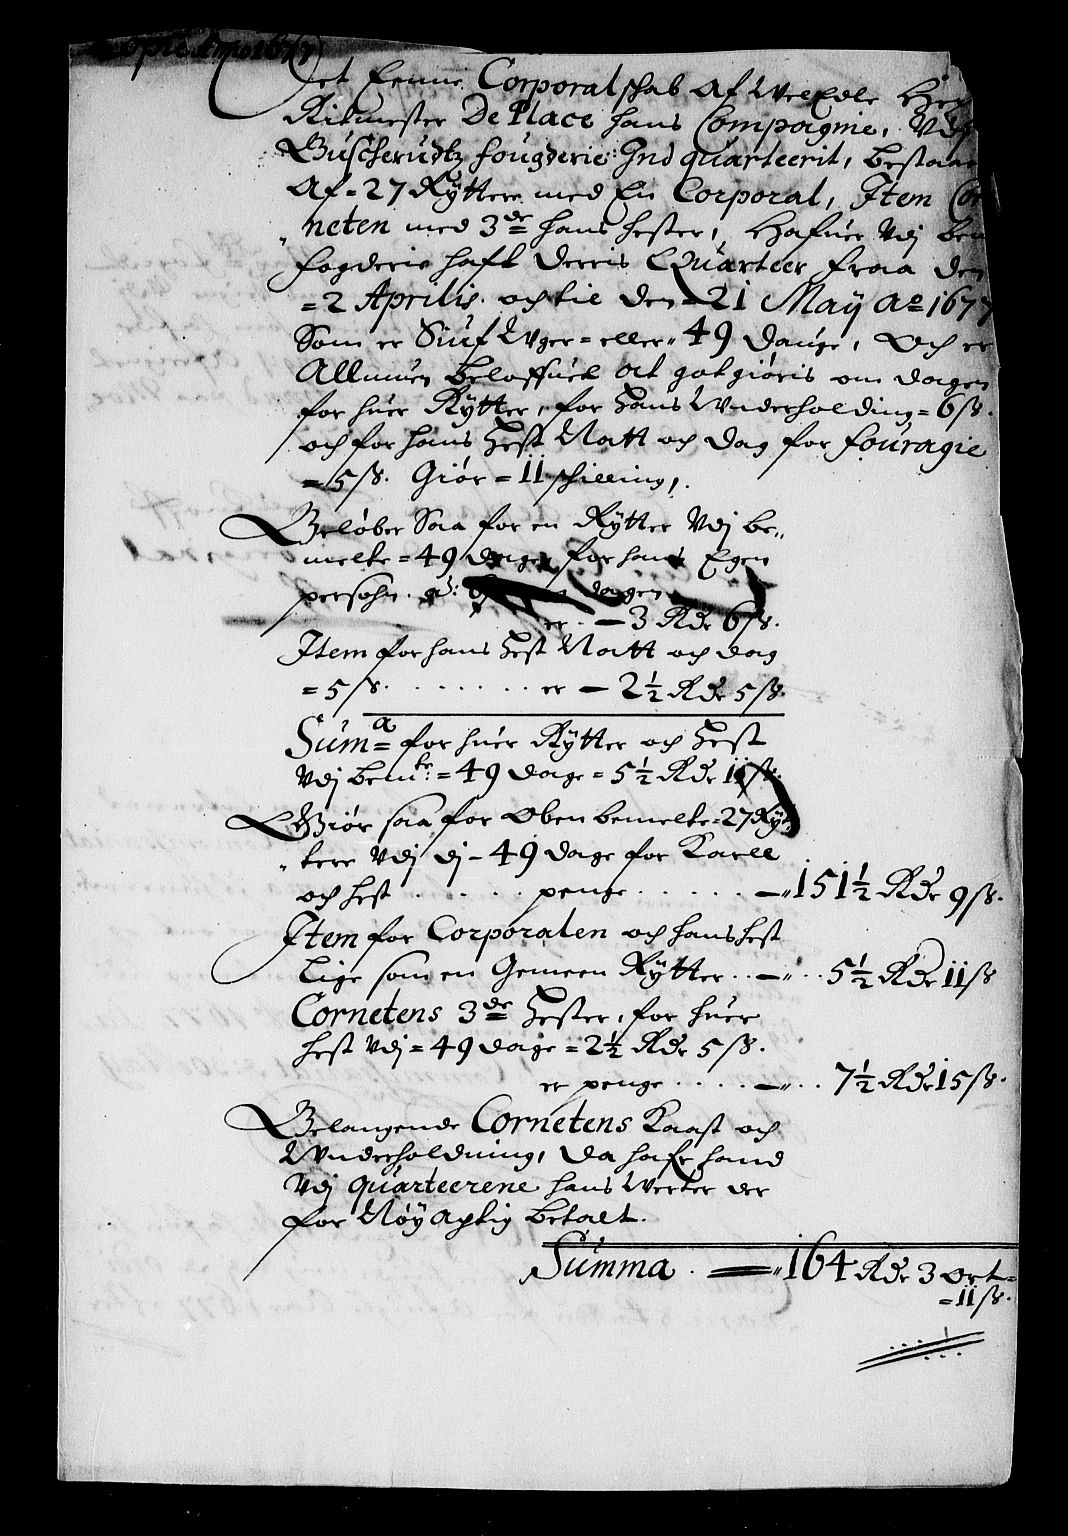 Copie Anno 1677
Det Eenne Corporalschab Af WelEdle Her
Ritmester De Place hans Compagnie, Vdj
Buscherudtz fougderie: Ind quarteerit, bestaar
Af = 27 Rÿttere med En Corporal, Jtem Cor
neten med 3de hans hester, Hafuer Vdj bem
fogderie haft derris Quarteer fraa den
= 2 Aprilis. och til den = 21 Maÿ Ao 1677
Som er Siuf Vger = eller = 49 dauge, Och er
Allmuen beloffuet At got giøris om dagen
for huer Rÿtter, for hans Vnderholding = 6 ß.
och for hans Hest Natt och dag for fouragie
= 5 ß. Giør = 11 schilling,
Beløber Saa for en Rÿtter Vdj be„
melte = 49 dage, for hans Egen
persohn. a: 6 dagen
er. — 3 Rdr 6 ß.
Jtem for hans Hest Natt och dag
= 5 ß. . . . . . . . er — 2½ Rdr 5 ß.
Suma for huer Rÿtter och Hest
Vdj bemte: = 49 dage = 5½ Rdr 11 ß.
Giør saa for Oben bemelte = 27 Rÿt
„tere Vdj dj - 49 dage for Karll
och hest . . . . . penge . . . . . —„ 151½ Rdr 9 ß.
Jtem for Corporalen och hans hest
lige som en Gemeen Rÿtter . . —„ . . 5½ Rdr 11 ß
Cornetens 3de Hester, for huer
hest Vdj = 49 dage = 2½ Rdr 5 ß.
er penge . . . . —„ . . 7½ Rdr 15 ß.
Belangende Cornetens Kaast och
Vnderholdning, da hafr hand
Vdj quarteerene hans Werter der
for Nøÿaptig betalt.
Summa . ═„ 164 Rdr 3 Ort =
= 11 ß.